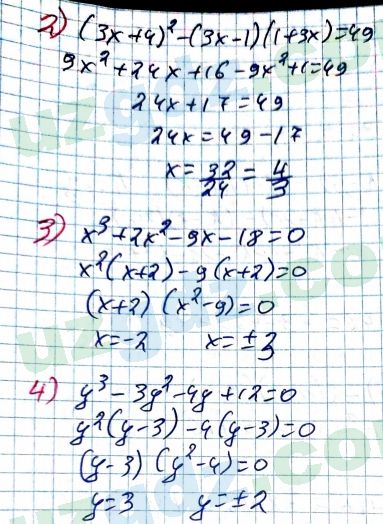 2) (3x+4)²-(3x-1)(1+3x)=49
9x²+24x+16-9x²+1=49
24x+17=49
24x=49-17
x=32/24=4/3
3) x³+2x²-9x-18=0
x²(x+2)-9(x+2)=0
(x+2)(x²-9)=0
x=-2 x=±3
4) y³-3y²-4y+12=0
y²(y-3)-4(y-3)=0
(y-3)(y²-4)=0
y=3 y=±2